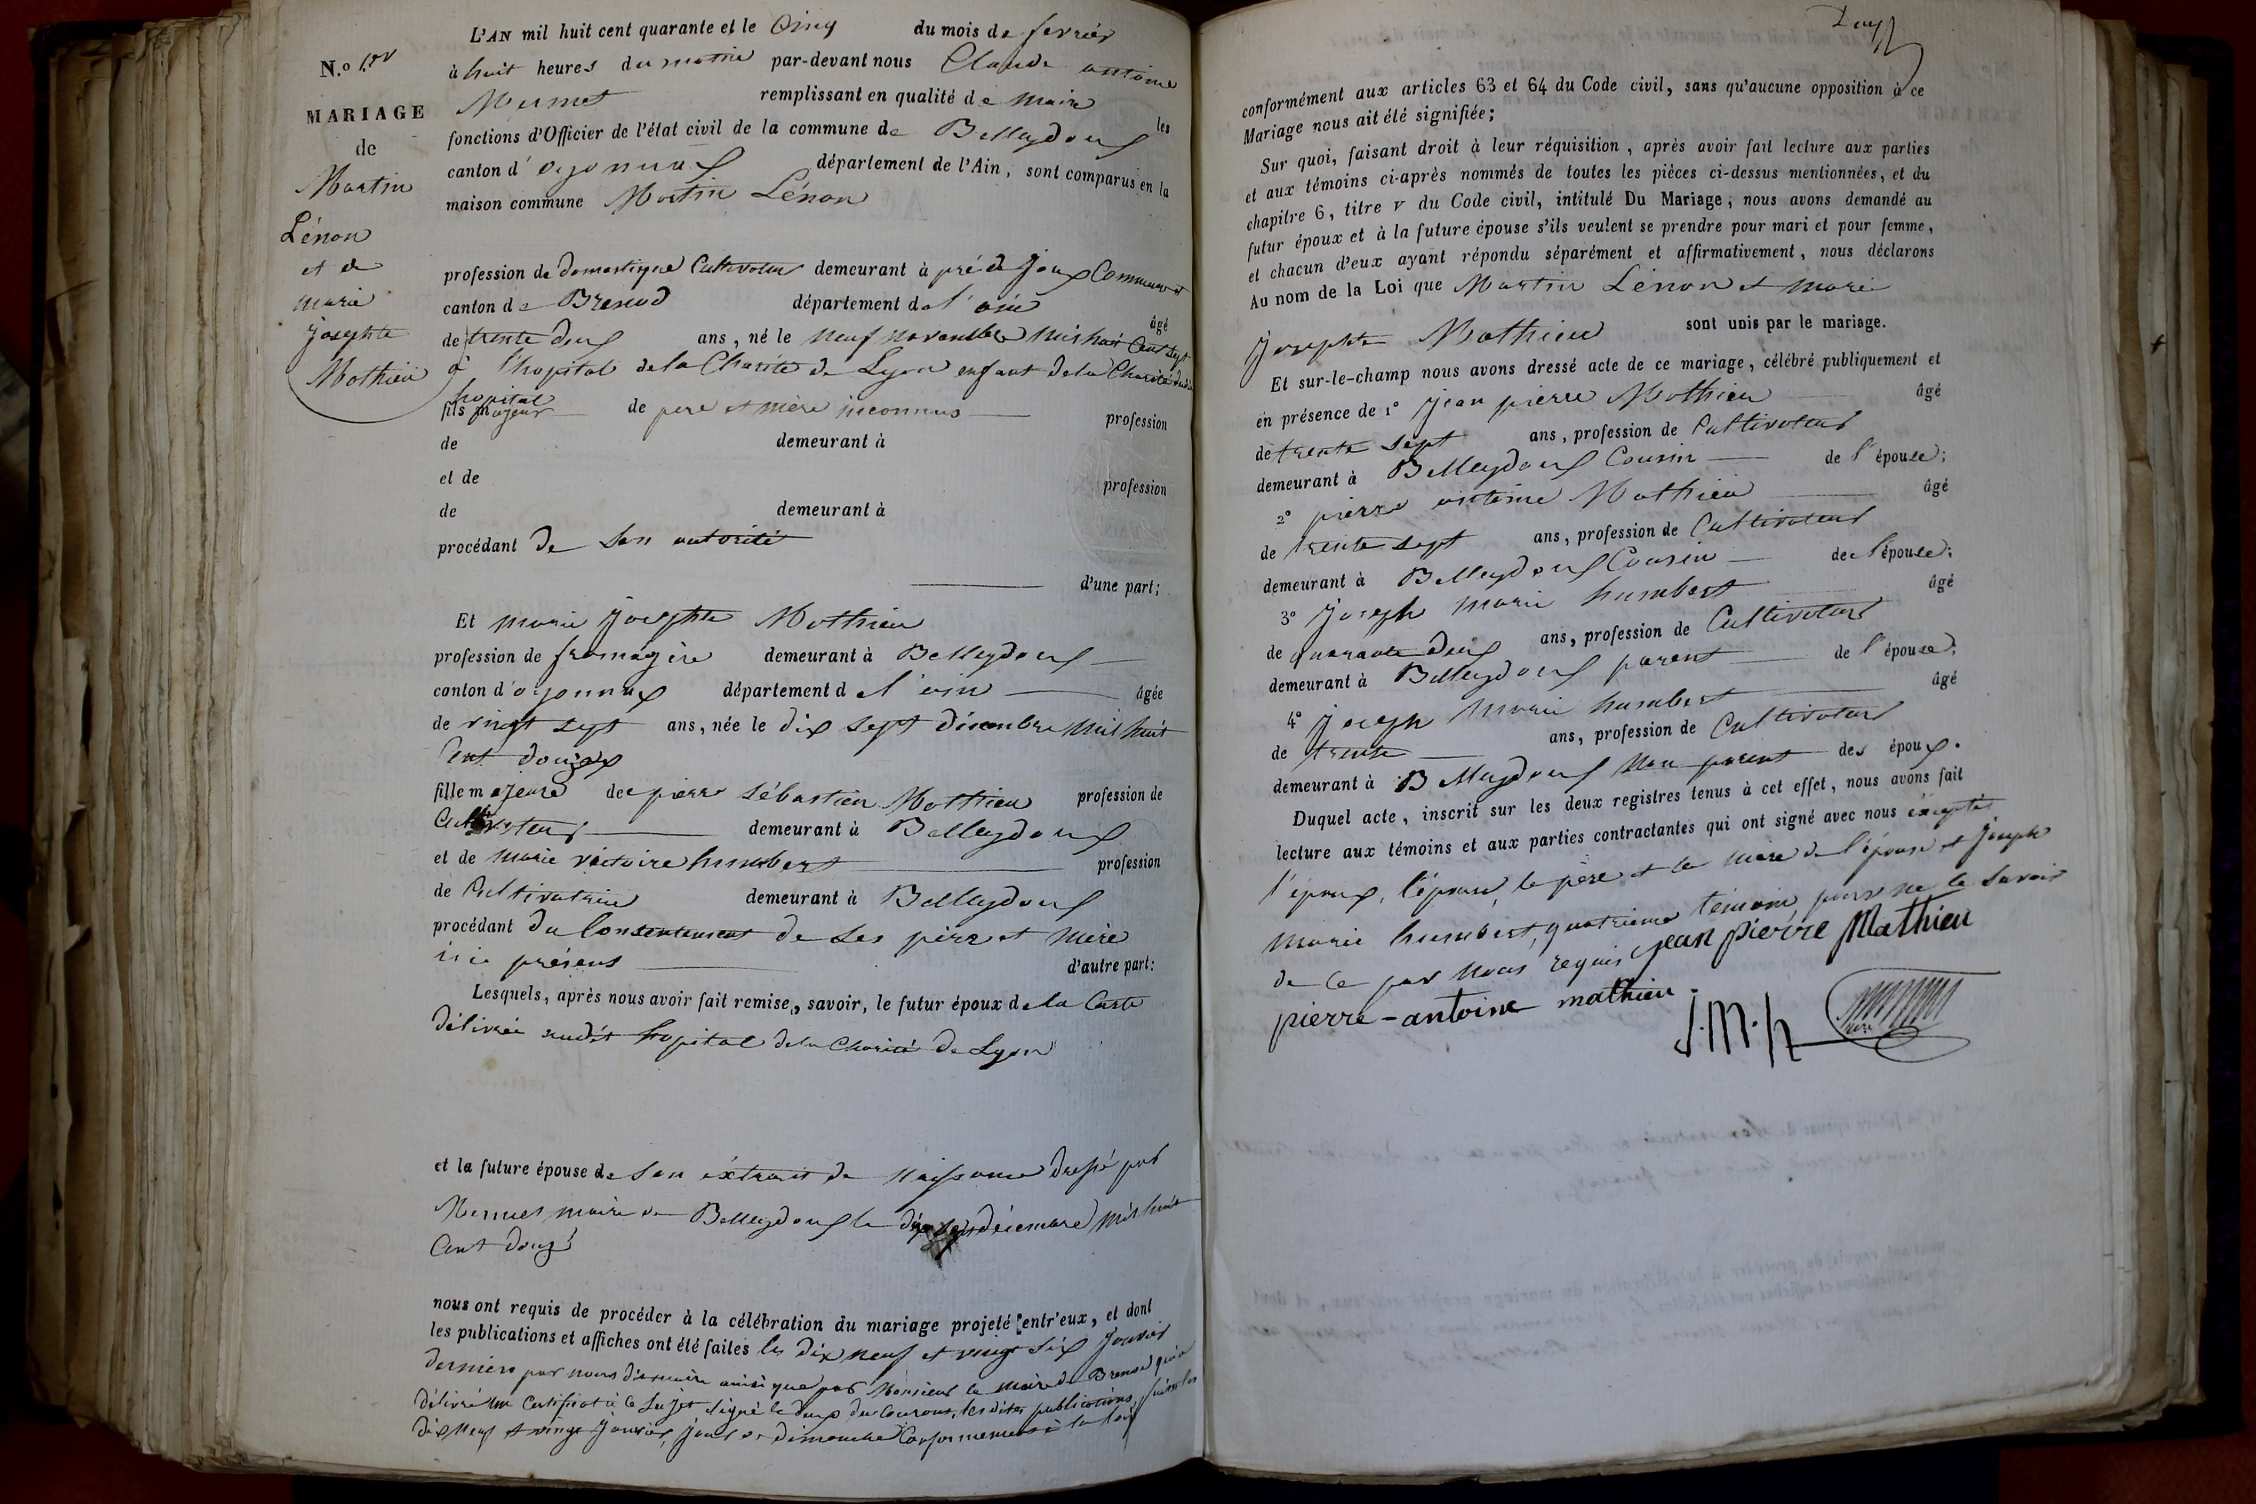 L'AN mil huit cent quarante et le Cinq du mois de fevrier
N.o 1er
à huit heures du matin par-devant nous Claude antoine
Mermet remplissant en qualité de Maire les
MARIAGE
fonctions d'Officier de l'état civil de la commune de Belleydoux
de
canton d'oyonnax département de l'Ain, sont comparus en la
maison commune Martin Lénon
Martin
Lénon
et de
marie
Josephte
Mathieu
profession de domestique Cultivateur demeurant à pré de Joux Commune et
canton de Brenod département de l'ain âgé
de trente deux ans, né le neuf novembre mil huit Cent sept
à l'hopital de la Charité de Lyon enfant de la Charité dudit
hopital
fils majeur de pere et mère inconnus profession
de demeurant à
et de profession
de demeurant à
procédant de son autorité
d'une part;
Et marie josephte Mathieu
profession de fromagère demeurant à Belleydoux
canton d'oyonnax département de l'ain âgée
de vingt sept ans, née le dix sept décembre mil huit
Cent douze
fille majeure de pierre Sébastien Mathieu profession de
Cultivateur demeurant à Belleydoux
et de marie victoire humbert profession
de Cultivatrice demeurant à Belleydoux
procédant du Consentement de ses père et mère
ici présens d'autre part:
Lesquels, après nous avoir fait remise, savoir, le futur époux de la Carte
délivrée audit hopital de la Charité de Lyon
et la future épouse de son extrait de naissance dressé par
Mermet maire de Belleydoux le dix sept décembre mil huit
Cent douze
nous ont requis de procéder à la célébration du mariage projeté entr'eux, et dont
les publications et affiches ont été faites les dix neuf et vingt six janvier
derniers par nous dit maire ainsi que par Monsieur le maire de Brenod qui a
délivré un Certificat à ce sujet signé le deux du Courant, les dites publications faites les
dix neuf et vingt janvier, jour de dimanche Conformement à la loi
conformément aux articles 63 et 64 du Code civil, sans qu'aucune opposition à ce
Mariage nous ait été signifiée;
Sur quoi, faisant droit à leur réquisition, après avoir fait lecture aux parties
et aux témoins ci-après nommés de toutes les pièces ci-dessus mentionnées, et du
chapitre 6, titre V du Code civil, intitulé Du Mariage, nous avons demandé au
futur époux et à la future épouse s'ils veulent se prendre pour mari et pour femme,
et chacun d'eux ayant répondu séparément et affirmativement, nous déclarons
Au nom de la Loi que Martin Lénon et marie
Josephte Mathieu sont unis par le mariage.
Et sur-le-champ nous avons dressé acte de ce mariage, célébré publiquement et
en présence de 1° jean pierre Mathieu âgé
de trente sept ans, profession de Cultivateur
demeurant à Belleydoux Cousin de l'épouse;
2° pierre antoine Mathieu âgé
de trente sept ans, profession de Cultivateur
demeurant à Belleydoux Cousin de l'épouse;
3° Joseph marie humbert âgé
de quarante deux ans, profession de Cultivateur
demeurant à Belleydoux parent de l'épouse;
4° joseph marie humbert âgé
de trente ans, profession de Cultivateur
demeurant à Belleydoux non parent des époux.
Duquel acte, inscrit sur les deux registres tenus à cet effet, nous avons fait
lecture aux témoins et aux parties contractantes qui ont signé avec nous excepté
l'epoux, l'épouse, le père et la mère de l'épouse et Joseph
marie humbert, quatrieme temoin pour ne le savoir
de ce par nous requis jean pierre Mathieu
pierre-antoine mathieu.
J.M.h